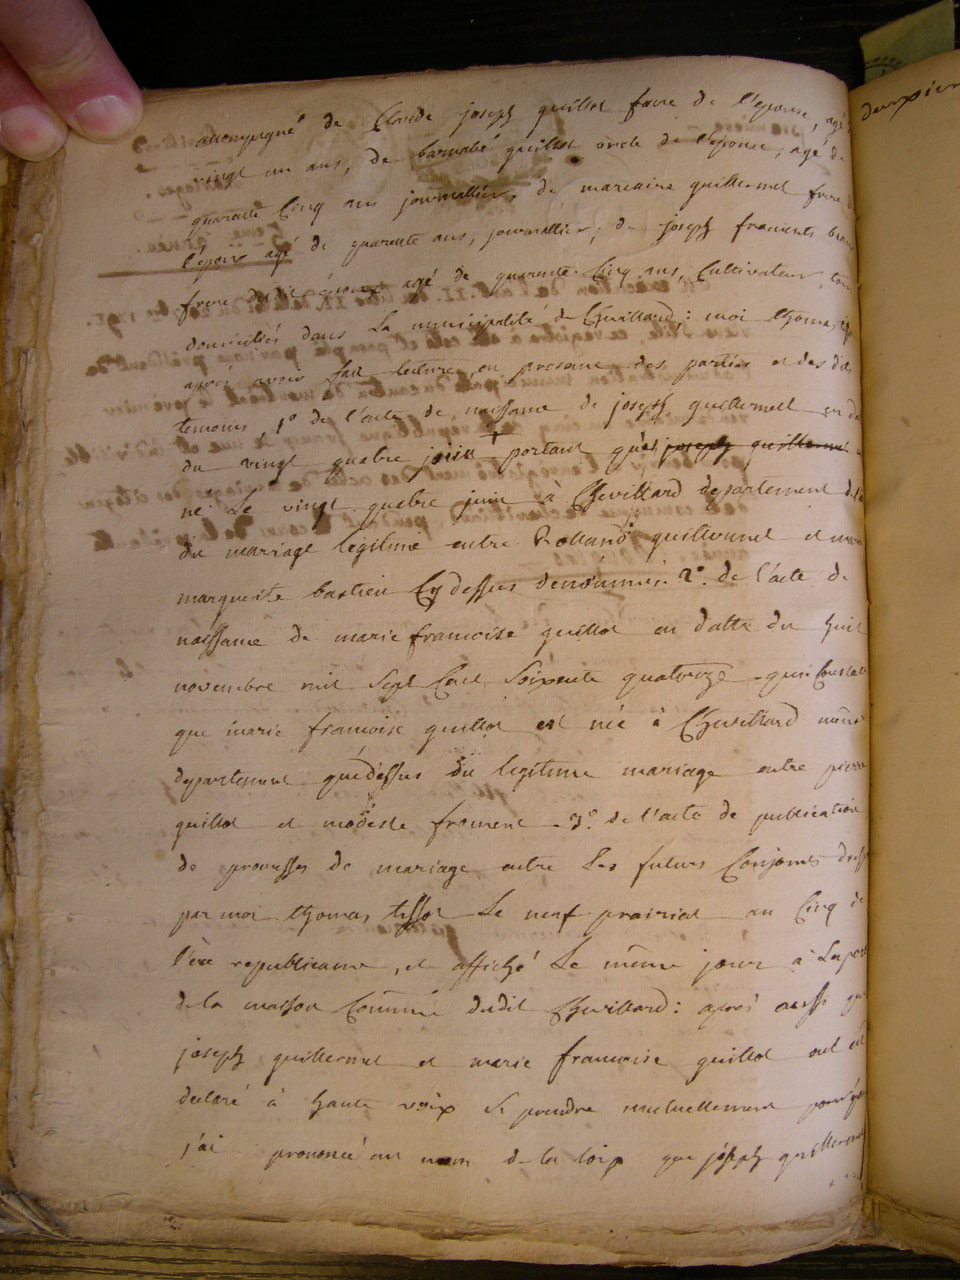 accompagné de Claude joseph guillot frere de l'épouse, agé
vingt un ans, de barnabé guillot oncle de l'épouse, agé de
quarante Cinq ans journallier, de mariaire guillermet frere
l'époux agé de quarante ans, journallier, de joseph froments beau
frere époux agé de quarante Cinq ans, Cultivateur, tous
domiciliés dans La municipalité de Chevillard; moi thomas
après avoir fait lecture en presence des parties et des dits
temoins, 1º de l'acte de naissance de joseph guillermet en
du vingt quatre juin portant que joseph guillermet
né Le vingt quatre juin à Chevillard departement
du mariage legitime entre Rolland guillermet et
marguerite bastien Cy dessus denommés. 2º. de l'acte de
naissance de marie francoise guillot en datte du huit
novembre mil Sept Cent Soixente quatorze qui Constate
que marie francoise guillot est née à Chevillard même
departement que dessus du legitime mariage entre pierre
guillot et modeste froment 3º. de l'acte de publication
de promesses de mariage entre Les futurs Conjoints
par moi thomas tissot Le neuf prairial an Cinq de
l'ère republicaine, et affiché Le même jour à La porte
de la maison Commune dudit Chevillard: après aussi que
joseph guillermet et marie francoise guillot ont
declaré à haute voix Se prendre mutuellement pour
j'ai prononcé au nom de la loix que joseph guillermet